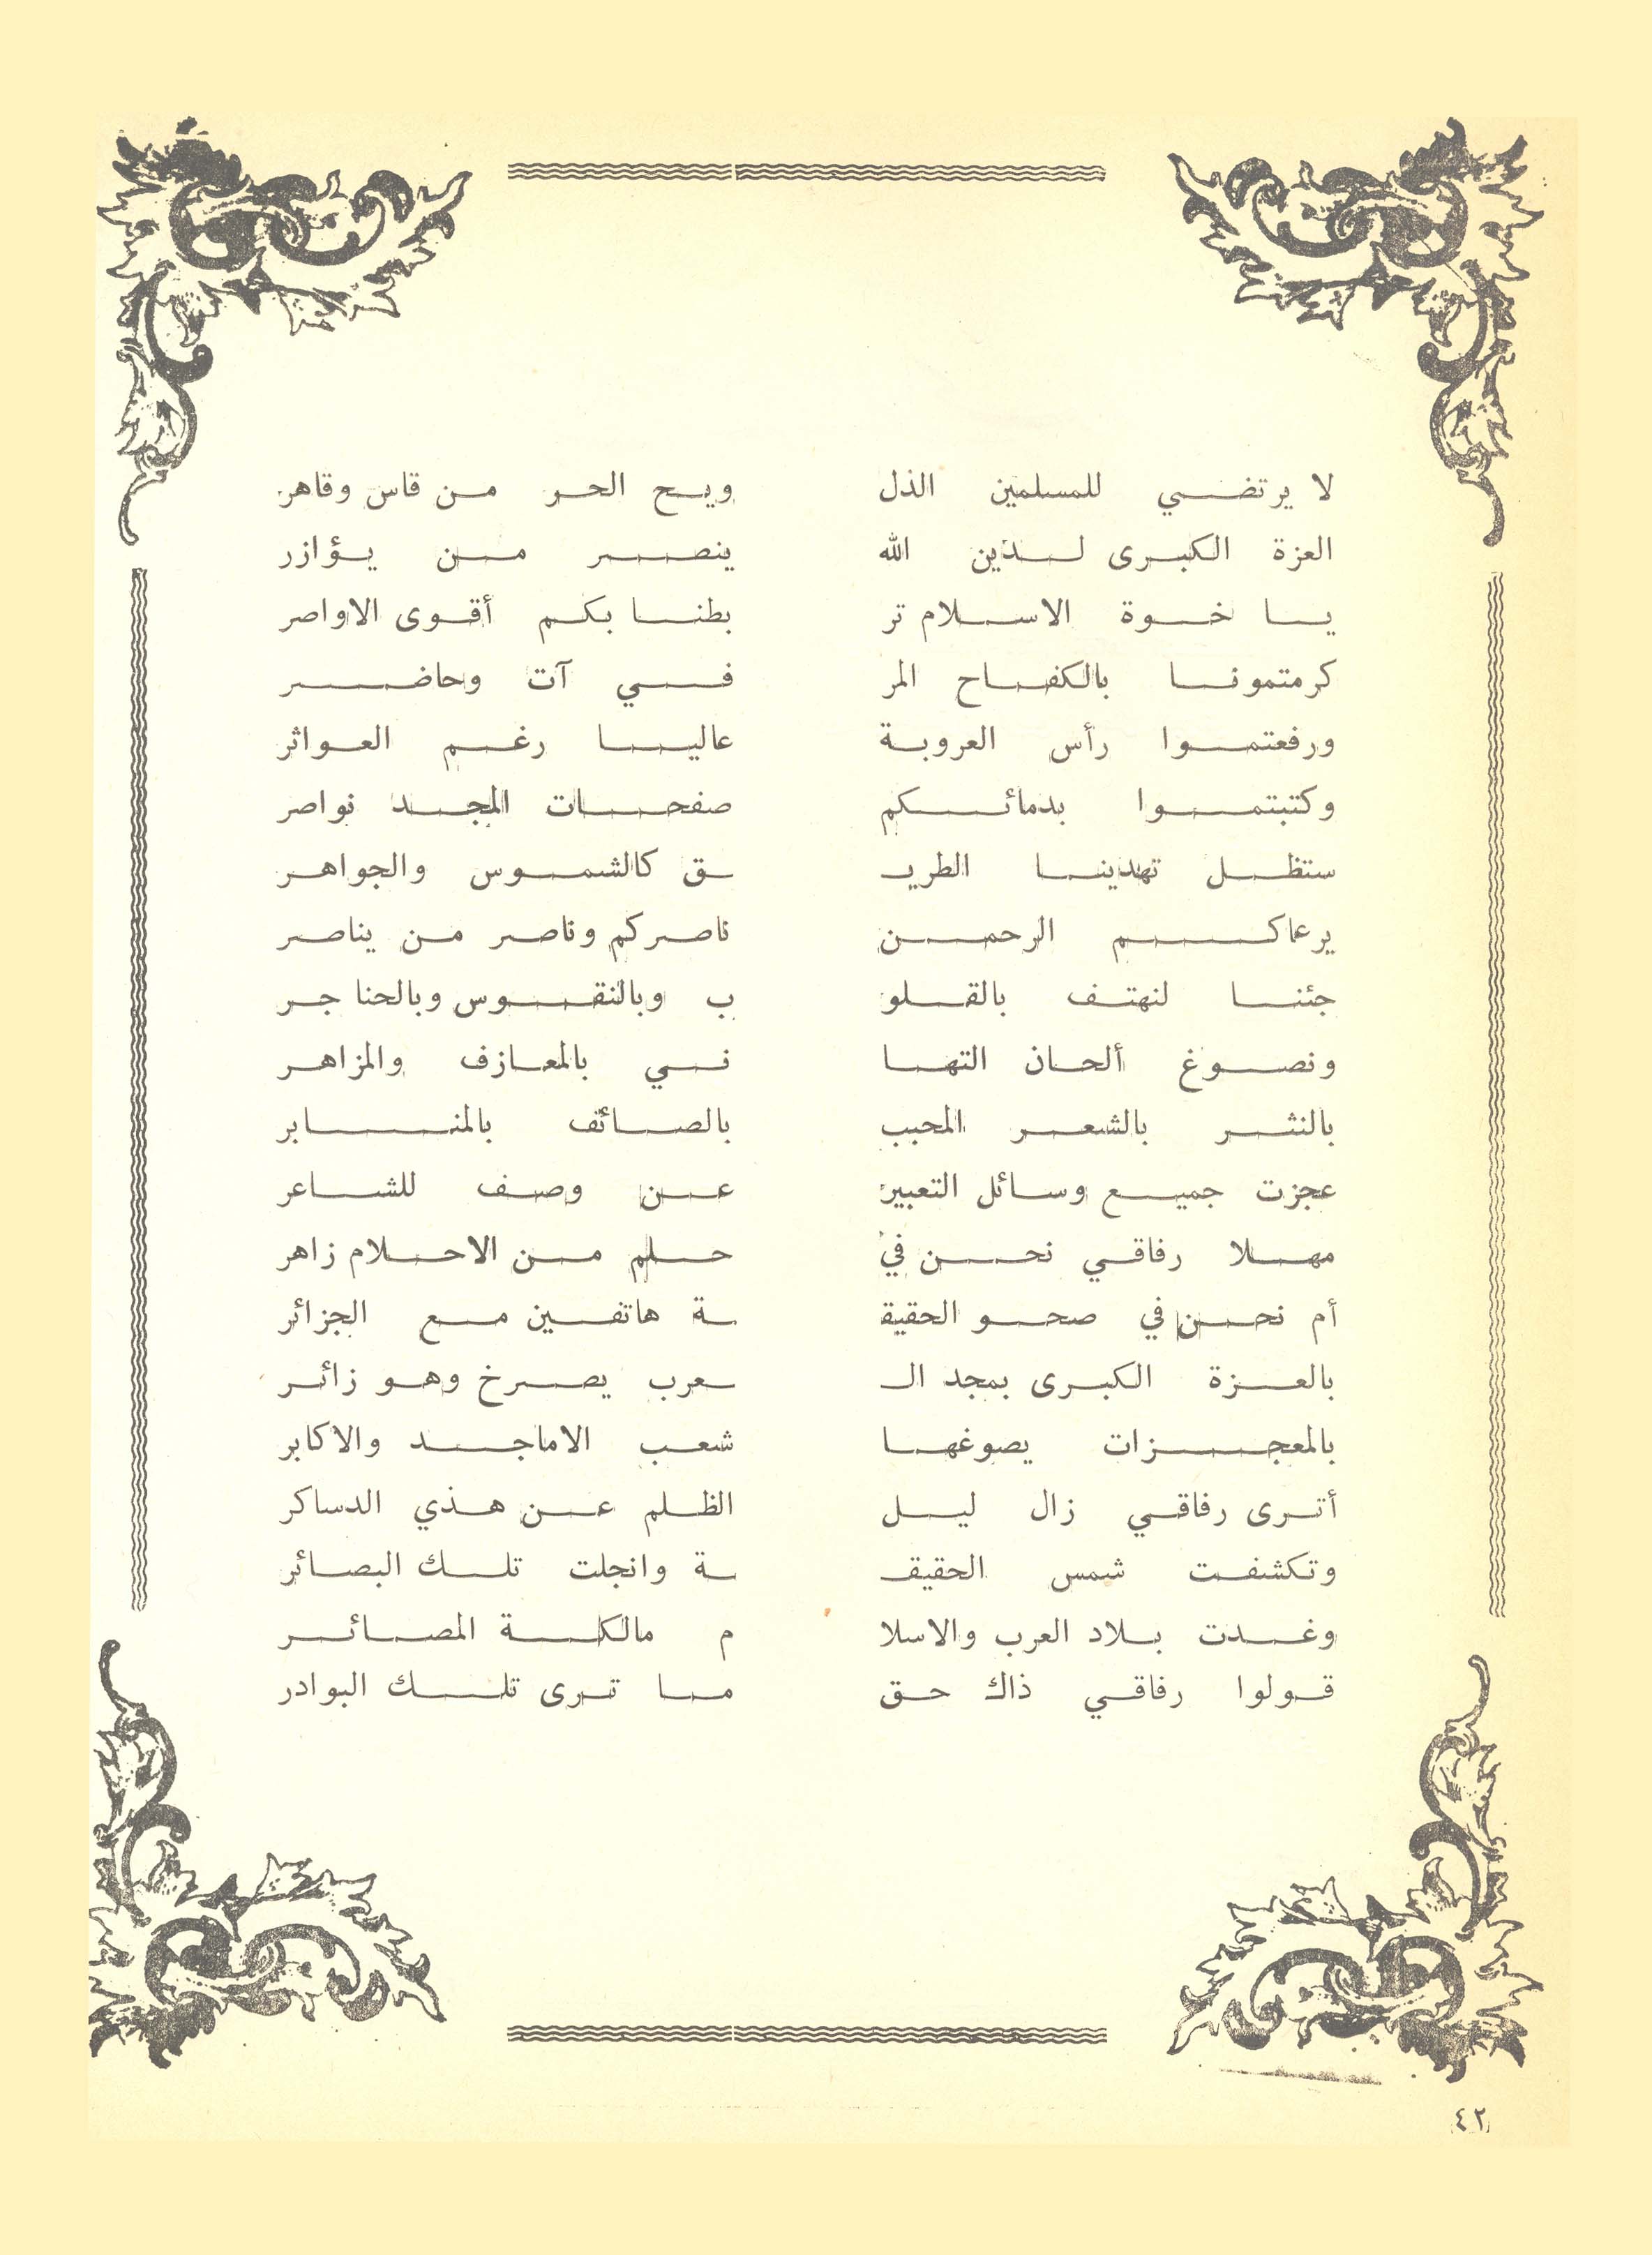 لا يرتضي للمسلمين الذل ويح الحر من قاس وقاهر
العزة الكبرى لدين الله ينصر من يؤازر
يا خوة الاسلام تر بطنا بكم أقوى الاواصر
كرمتمونا بالكفاح المر في آت وحاضر
ورفعتموا رأس العروبة عاليا رغم العواثر
وكتبتموا بدمائكم صفحات المجد نواصر
ستظل تهدينا الطريـ ـق كالشموس والجواهر
يرعاكم الرحمن ناصركم وناصر من يناصر
جئنا لنهتف بالقلو ب وبالنقوس وبالحناجر
ونصوغ ألحان التها ني بالمعازف والمزاهر
بالنثر بالشعر المحبب بالصائف بالمنابر
عجزت جميع وسائل التعبير عن وصف للشاعر
مهلا رفاقي نحن في حلم من الاحلام زاهر
أم نحن في صحو الحقيقـ ـة هاتفين مع الجزائر
بالعزة الكبرى بمجد الـ ـعرب يصرخ وهو زائر
بالمعجزات يصوغها شعب الاماجد والاكابر
أترى رفاقي زال ليل الظلم عن هذي الدساكر
وتكشفت شمس الحقيقـ ـة وانجلت تلك البصائر
وغدت بلاد العرب والاسلا م مالكة المصائر
قولوا رفاقي ذاك حق ما ترى تلك البوادر
٤٢